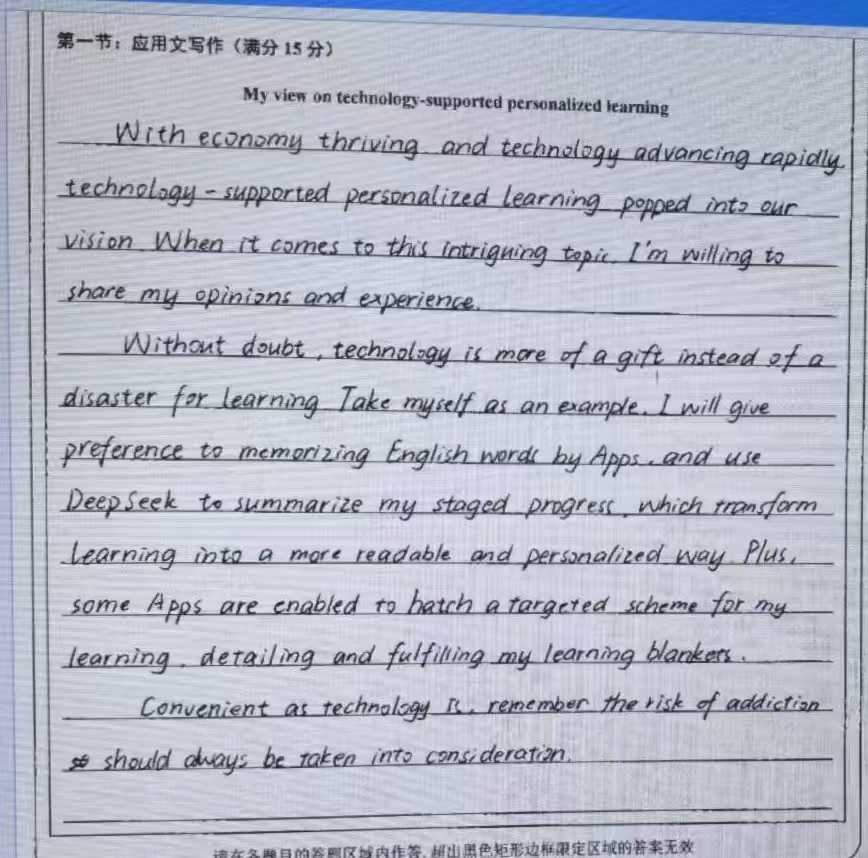 第一节：应用文写作（满分 15 分）
My view on technology-supported personalized learning
With economy thriving and technology advancing rapidly
technology-supported personalized learning popped into our
vision. When it comes to this intriguing topic, I'm willing to
share my opinions and experience.
Without doubt, technology is more of a gift instead of a
disaster for learning. Take myself as an example. I will give
preference to memorizing English words by Apps, and use
DeepSeek to summarize my staged progress, which transform
learning into a more readable and personalized way. Plus,
some Apps are enabled to hatch a targeted scheme for my
learning, detailing and fulfilling my learning blankets.
Convenient as technology is, remember the risk of addiction
should always be taken into consideration.
请在各题目的答题区域内作答，超出黑色矩形边框限定区域的答案无效